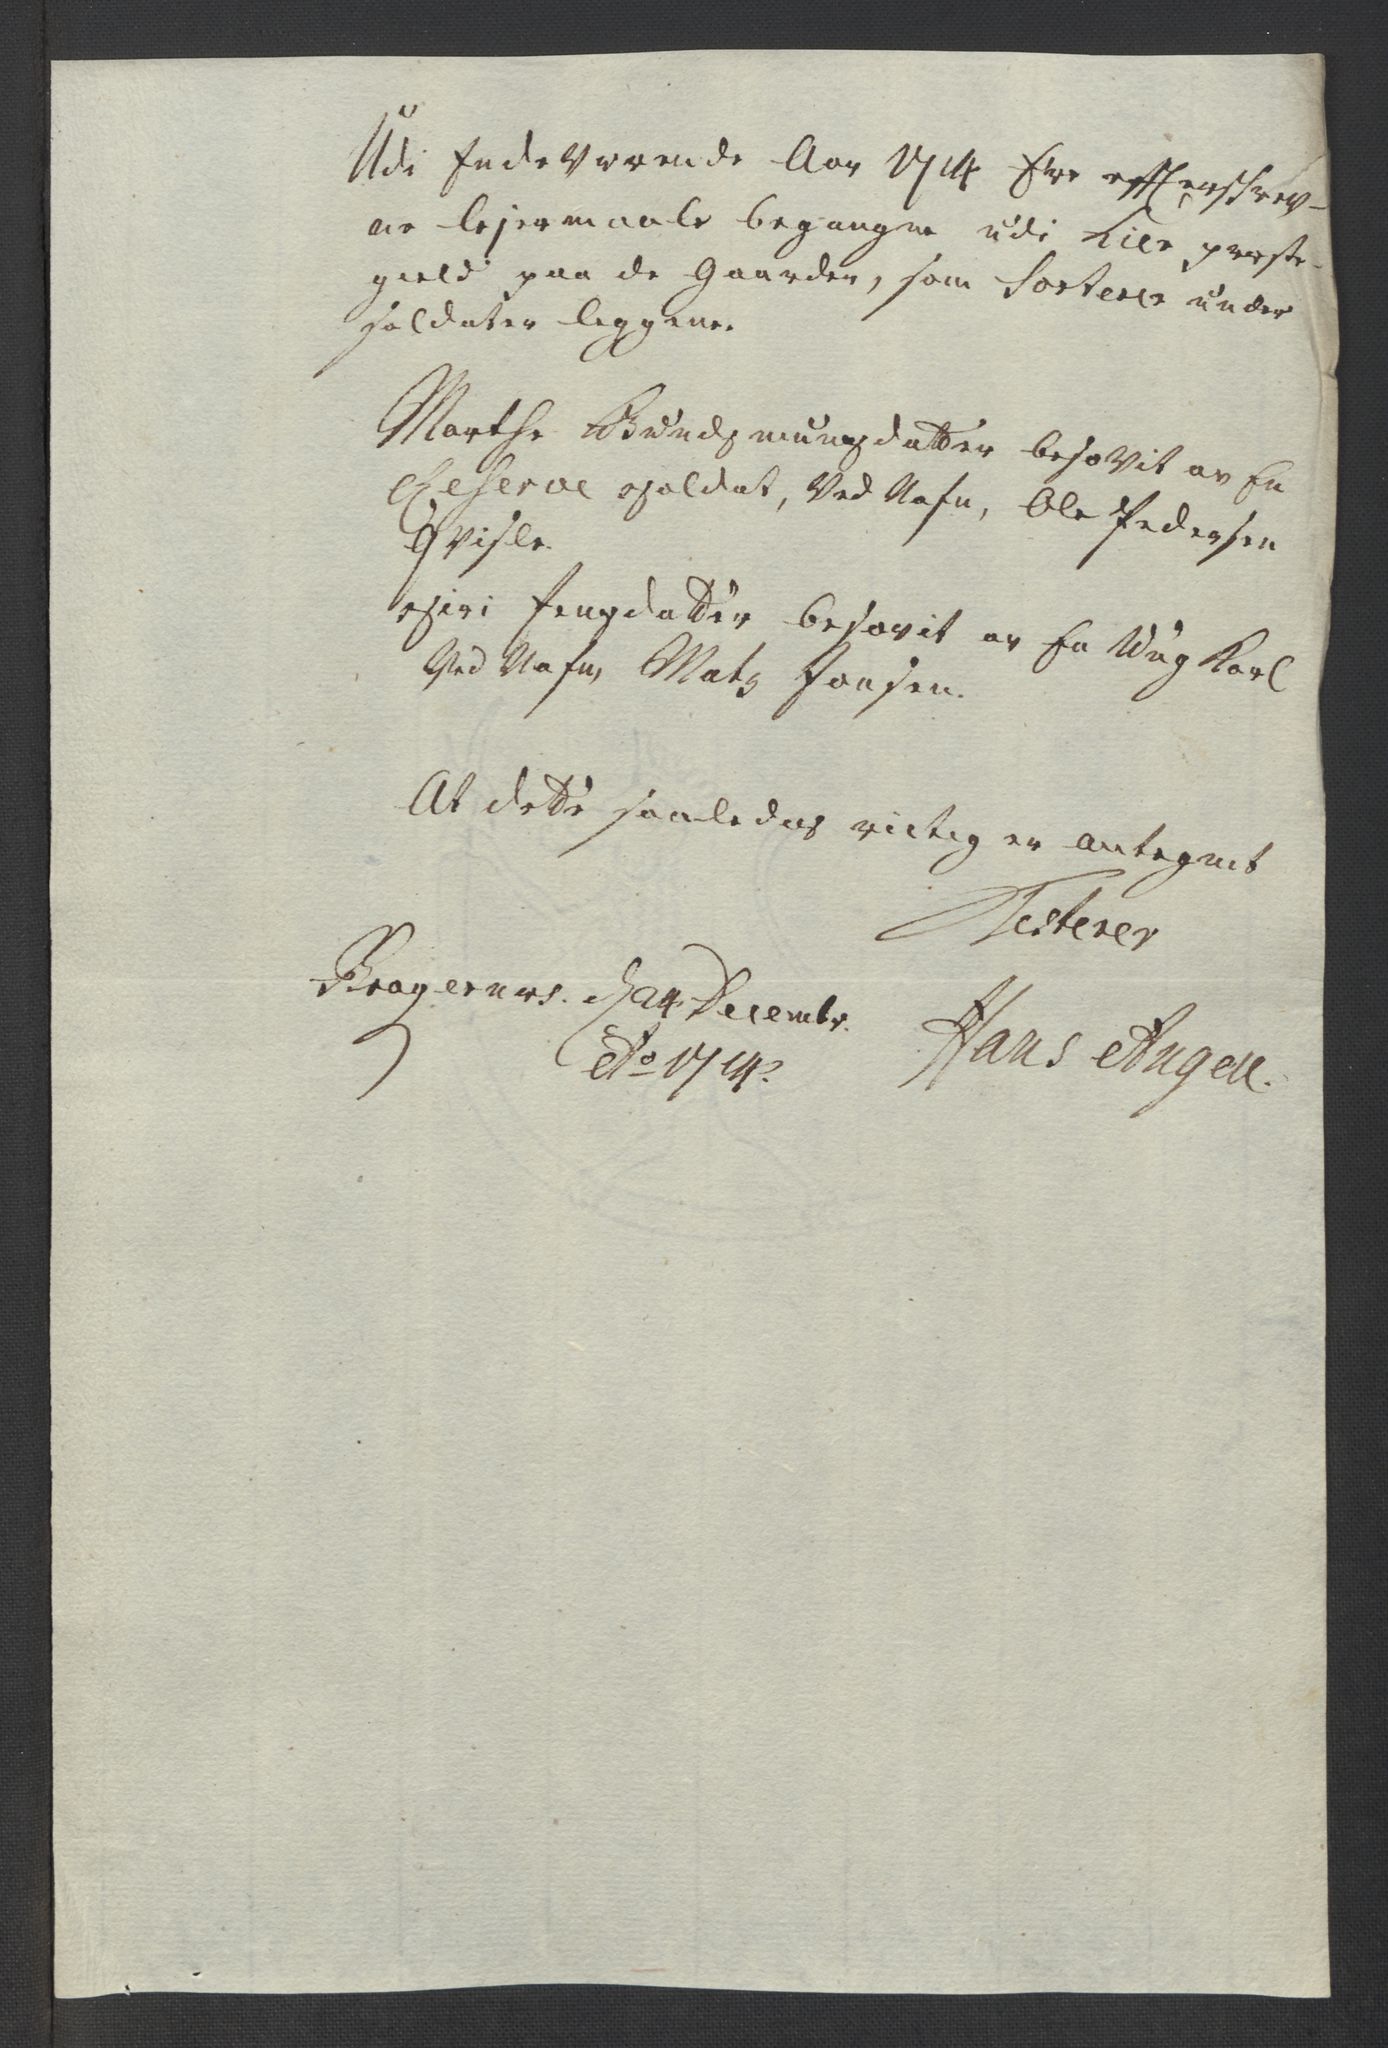 Udi Indeværende Aar 1714 Ere effterskrev-
ne lejermaale begangne udi Lier præste-
gield paa de Gaarder, som Sorterer under
soldater leggene.
Marthe Gudsmunsdatter besovit av En
Reserve Soldat, Ved Nafn, Ole Pedersen
Qvisle.
Siri Jensdatter besovit av En Ung Karl
Ved Nafn, Mats Jonsen.
At dette saaledes rictig er antegnit
Testerer
Bragernes. d 24 Decembr.
Ao 1714.
Hans Angell.